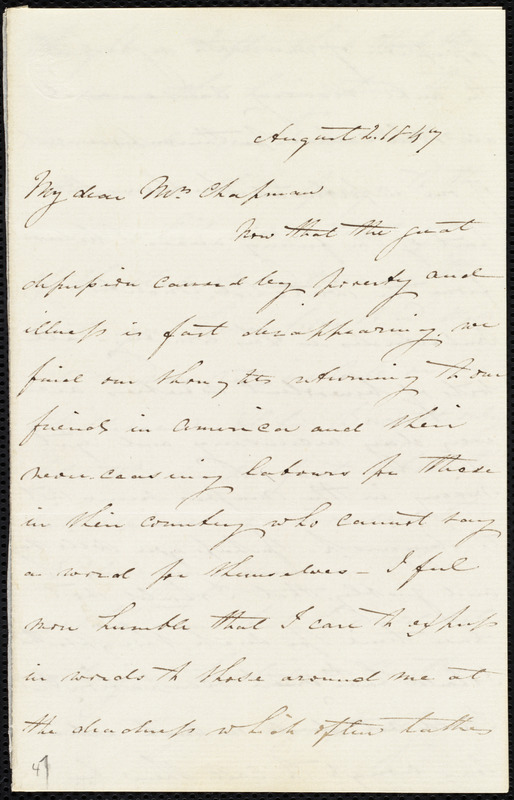 August 2. 1847
My dear Mrs Chapman
Now that the great
depression caused by poverty and
illness is fast disappearing, we
find our thoughts returning to our
friends in America and their
never-ceasing labours for those
in their country who cannot say
a word for themselves - I feel
more humble that I care to express
in words to those around me at
the deadness which often takes
4